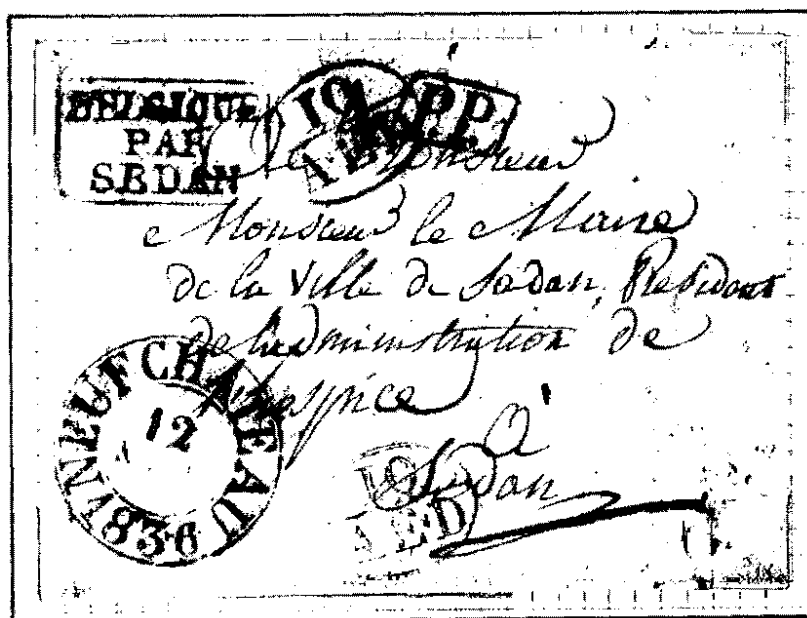 BELGIQUE
PAR
SEDAN
10
AED
P.P.
A Monsieur
Monsieur le Maire
de la Ville de Sedan, President
de l'administration de
l'hospice
à
Sedan
NEUFCHATEAU
12
1836
10
AED